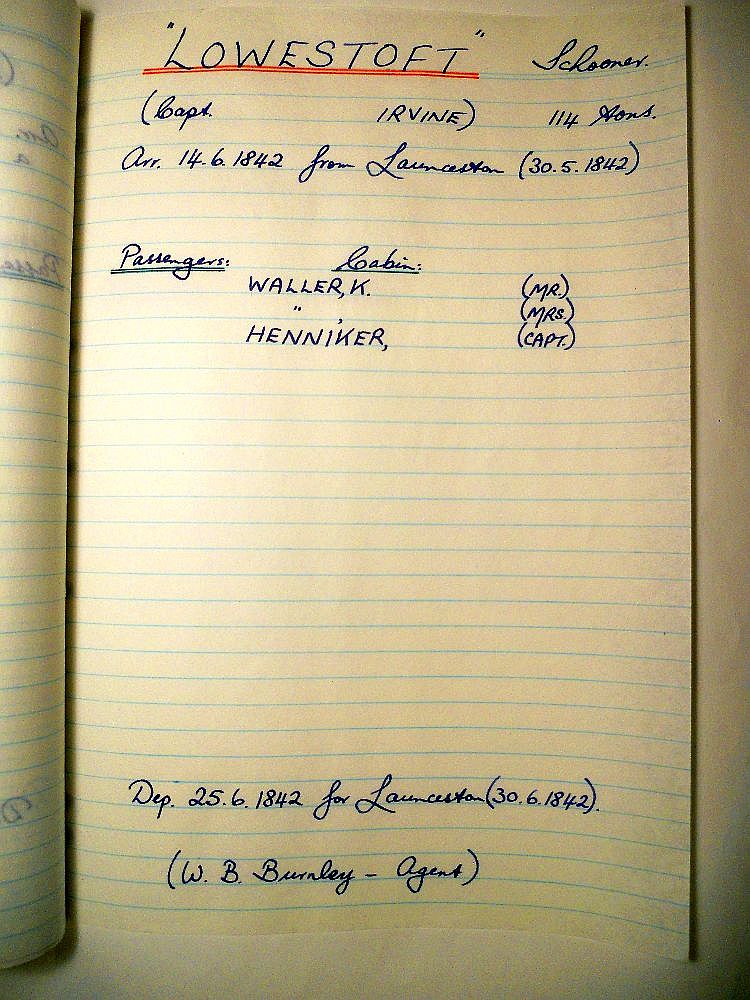 "LOWESTOFT" Schooner.
(Capt. IRVINE) 114 Tons.
Arr. 14.6.1842 from Launceston (30.5.1842)
Passengers: Cabin:
WALLER, K. (MR.)
" , (MRS.)
HENNIKER, (CAPT.)
Dep. 25.6.1842 for Launceston (30.6.1842).
(W. B. Burnley - Agent)